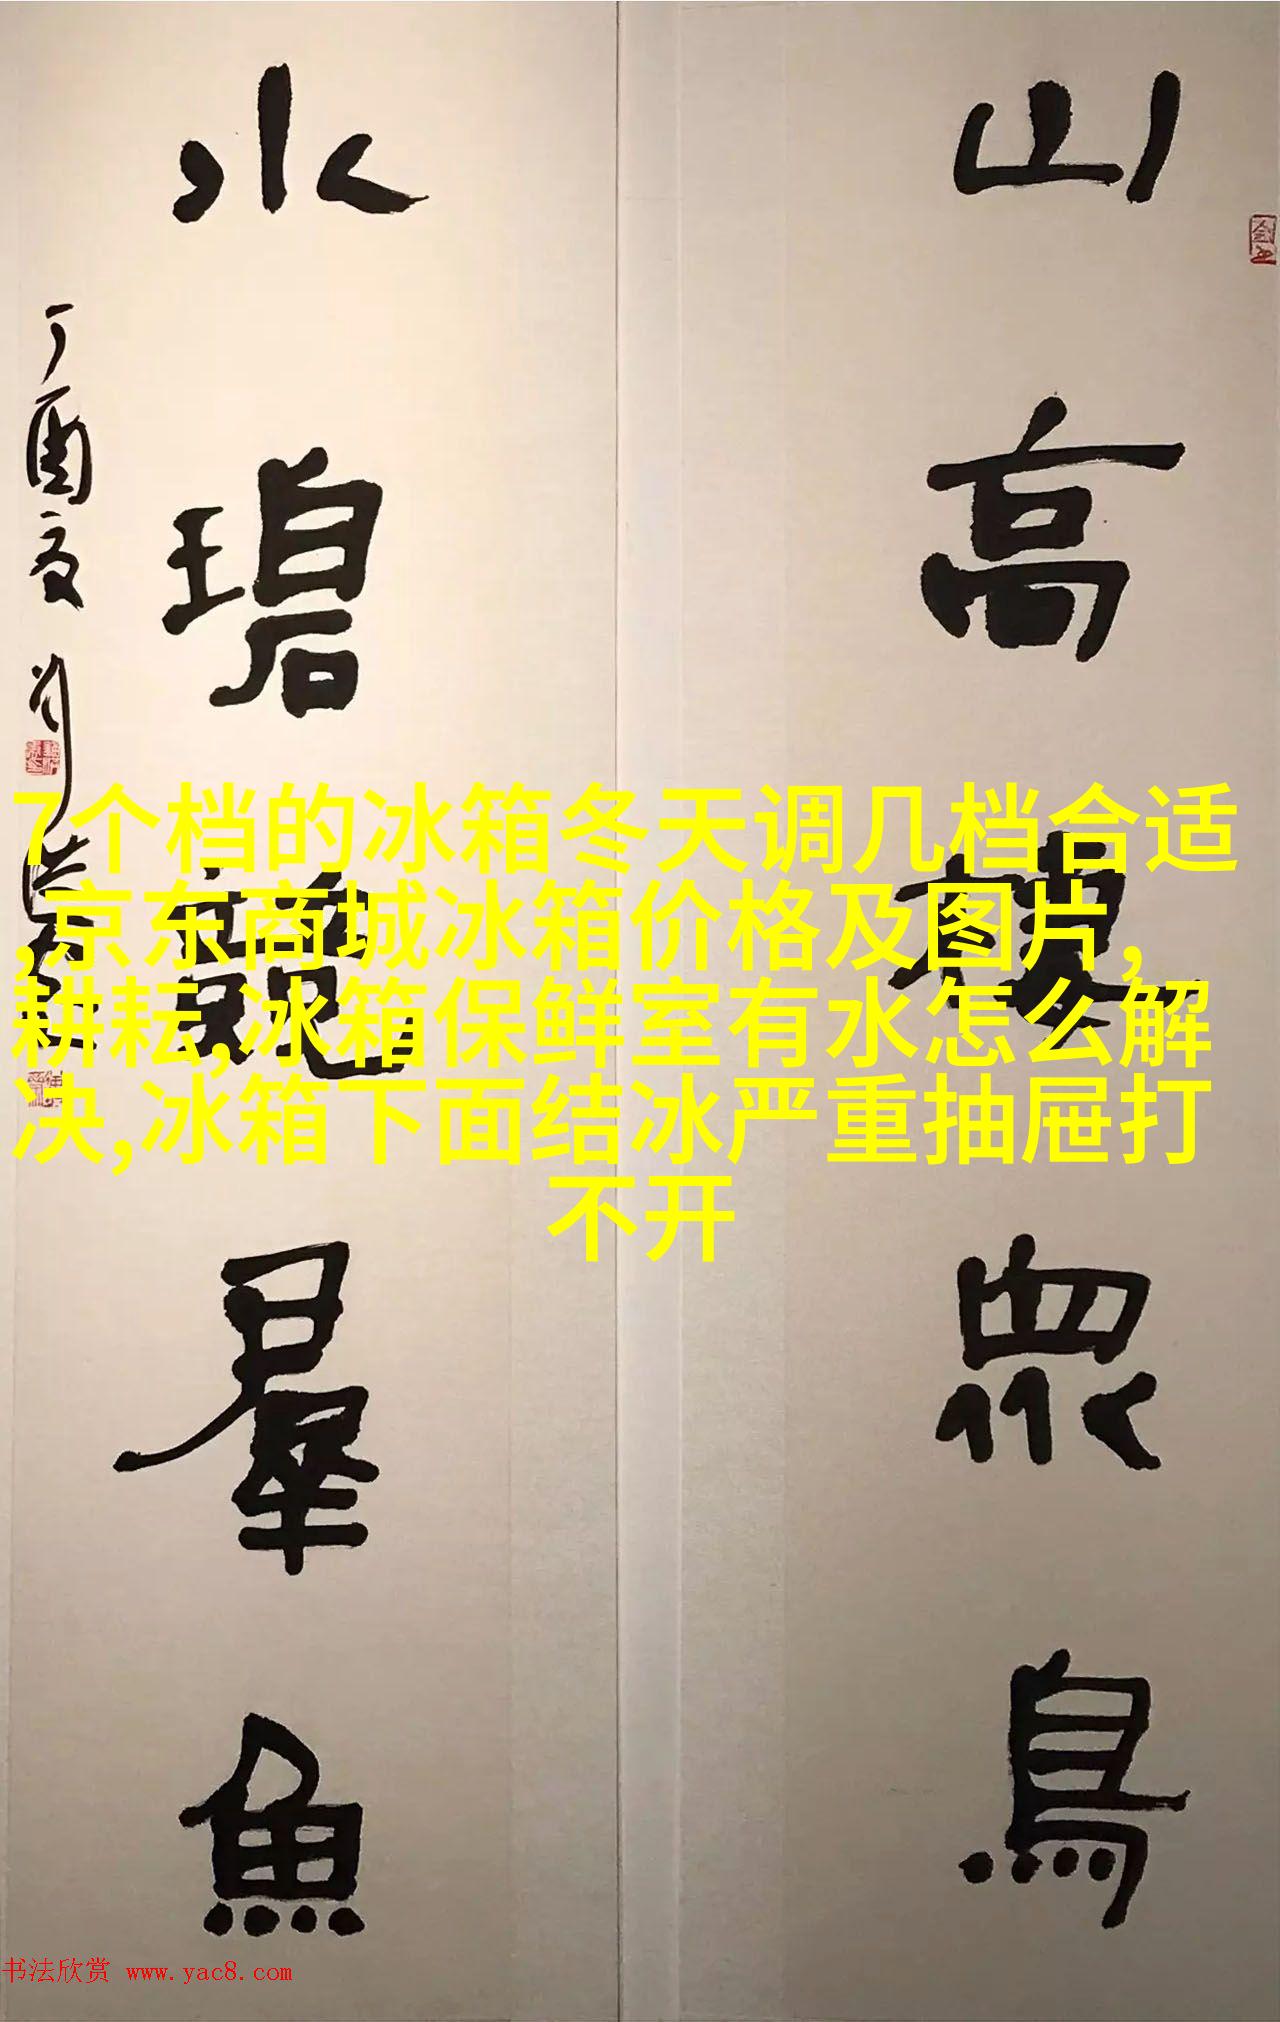 山高眾鳥
水碧羣魚
丁酉夏
7个档的冰箱冬天调几档合适
,京东商城冰箱价格及图片,
耕耘,冰箱保鲜室有水怎么解
决,冰箱下面结冰严重抽屉打
不开
书法欣赏 www.yac8.com